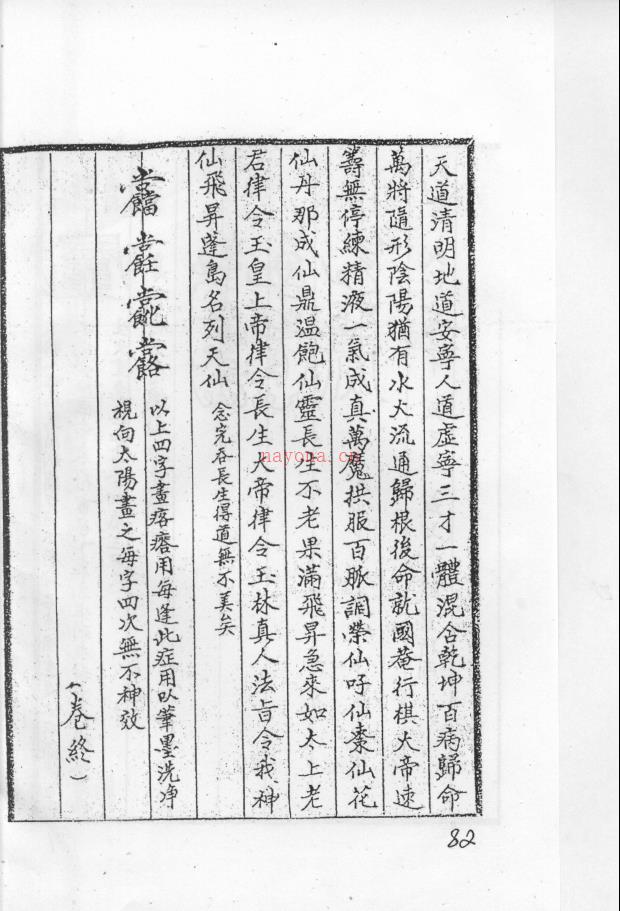 天道清明地道安寧人道虛寧三才一體混合乾坤百病歸命
萬將隨形陰陽猶有水火流通歸根後命就國菴行棋大帝速
壽無停練精液一氣成真萬魔拱服百脈調榮仙吁仙棗仙花
仙丹那成仙鼎溫飽仙靈長生不老果滿飛昇急來如太上老
君律令玉皇上帝律令長生大帝律令玉林真人法旨令我神
仙飛昇蓬島名列天仙
念完吞長生得道無不美矣
以上四字畫痞瘩用每逢此症用以筆墨洗净
視向太陽畫之每字四次無不神效
(卷終)
82
nayona.cn